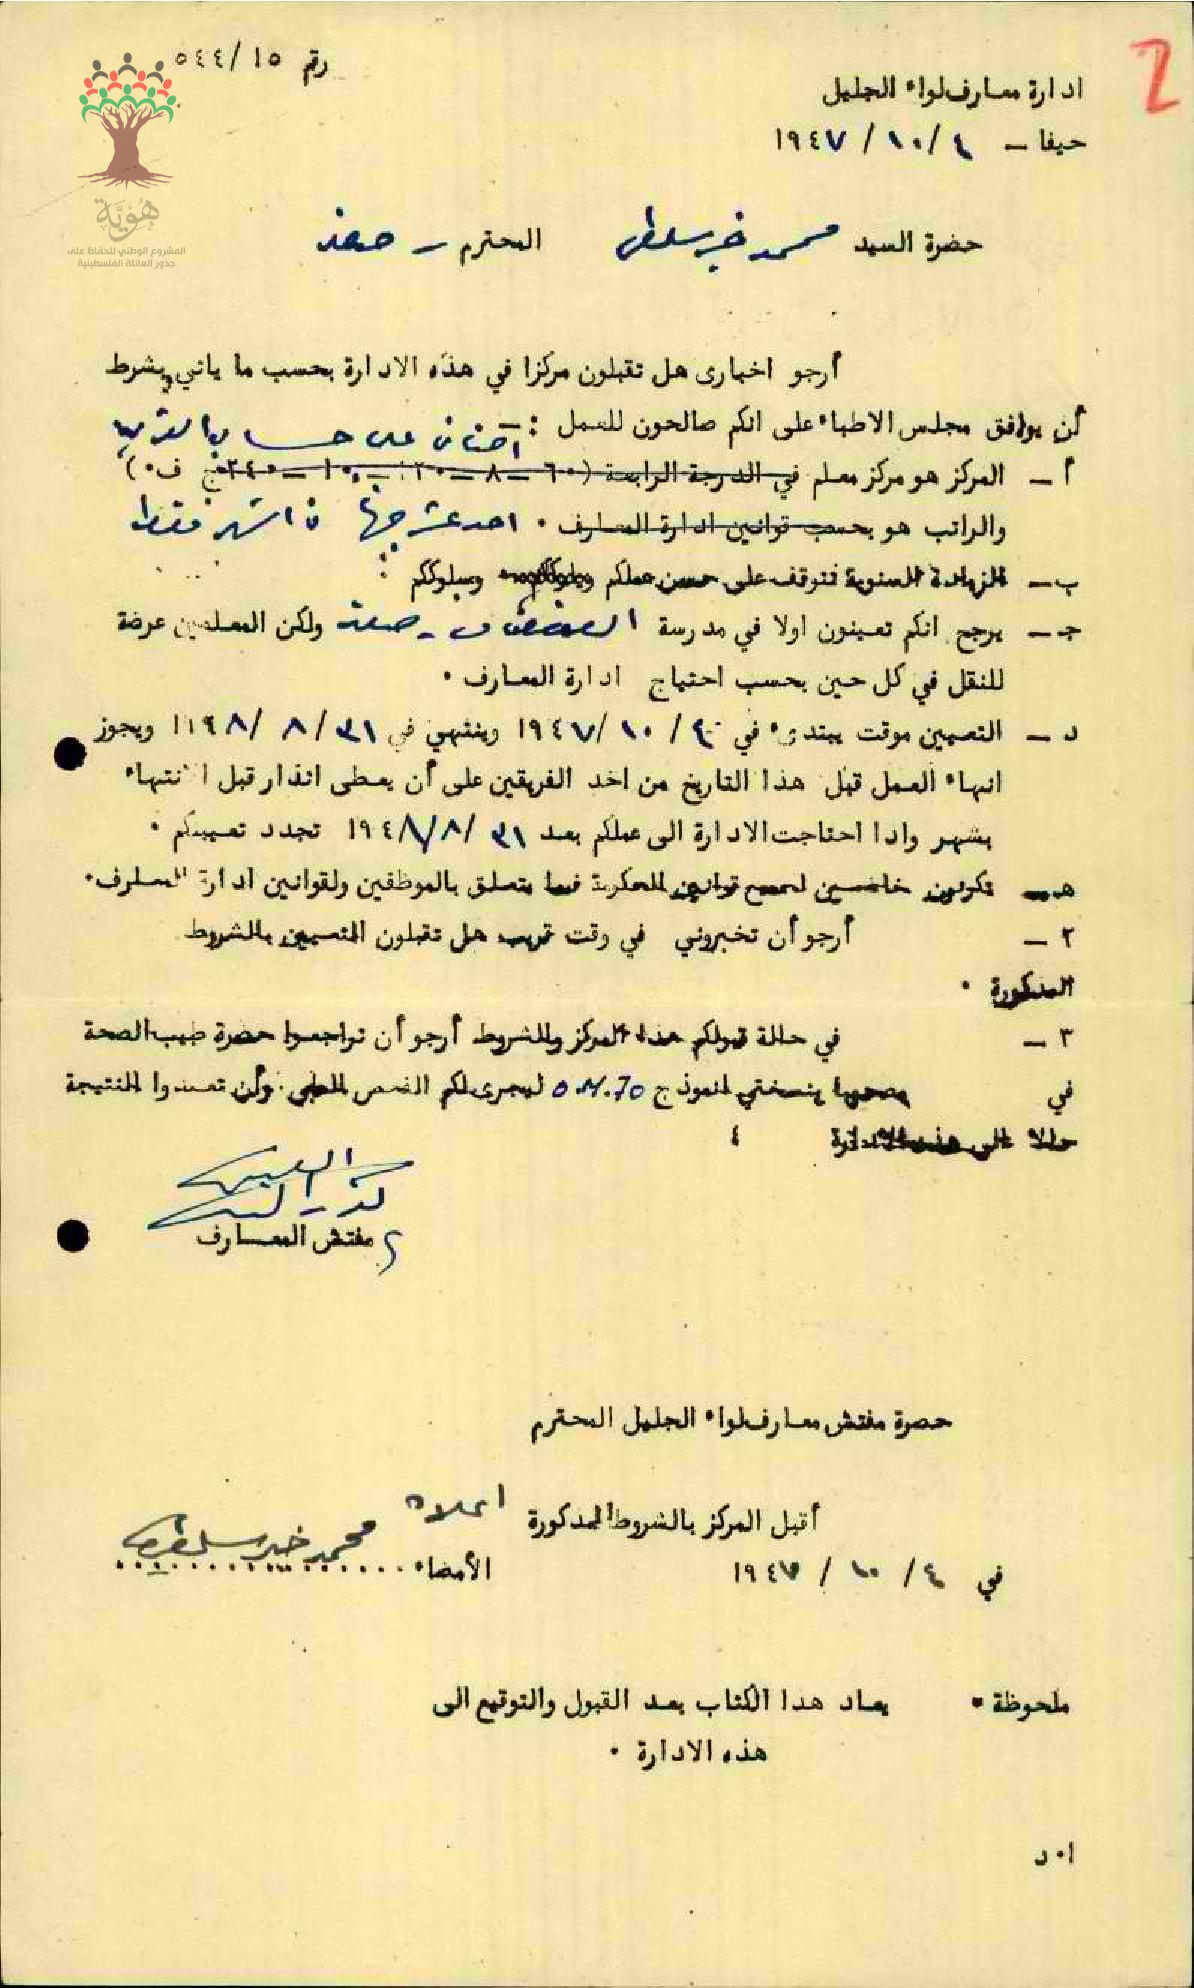 رقم ٥٤٤/١٥
2
ادارة معارف لواء الجليل
حيفا — ٤ / ١٠ / ١٩٤٧
هُوِيَّة
المشروع الوطني للحفاظ على
جذور العائلة الفلسطينية
حضرة السيد محمد خير المحترم — صفد
أرجو اخبارى هل تقبلون مركزا في هذه الادارة بحسب ما ياتي وبشرط
أن يوافق مجلس الاطباء على انكم صالحون للعمل :— على حساب
أ — المركز هو مركز معلم في الدرجة الرابعة (٦٠ — ٨ — ١٢٠ — ١٠ — ٢٤٠ ج ف٠)
والراتب هو بحسب قوانين ادارة المعارف ٠ احد عشر جنيها في الشهر فقط
ب — الزيادة السنوية تتوقف على حسن عملكم وسلوككم
ج — يرجح انكم تعينون اولا في مدرسة صفد ولكن المعلمين عرضة
للنقل في كل حين بحسب احتياج ادارة المعارف ٠
د — التعيين موقت يبتدىء في ٤ / ١٠ / ١٩٤٧ وينتهي في ٣١ / ٨ / ١٩٤٨ ويجوز
انهاء العمل قبل هذا التاريخ من احد الفريقين على أن يعطى انذار قبل الانتهاء
بشهر واذا احتاجت الادارة الى عملكم بعد ٣١ / ٨ / ١٩٤٨ تجدد تعيينكم ٠
هـ — تكونون خاضعين لجميع قوانين الحكومة فيما يتعلق بالموظفين ولقوانين ادارة المعارف٠
٢ — أرجو أن تخبروني في وقت قريب هل تقبلون التعيين بالشروط
المذكورة ٠
٣ — في حالة قبولكم هذا المركز والشروط أرجو أن تراجعوا حضرة طبيب الصحة
في مصحوبا بنسختي انموذج 70 .M .D ليجرى لكم الفحص الطبي وأن تعيدوا النتيجة
حالا الى هذه الادارة
مفتش المعارف
حضرة مفتش معارف لواء الجليل المحترم
أقبل المركز بالشروط المذكورة اعلاه
في ٤ / ١٠ / ١٩٤٧ الأمضاء محمد خير
ملحوظة ٠ يعاد هذا الكتاب بعد القبول والتوقيع الى
هذه الادارة ٠
ا٠ د